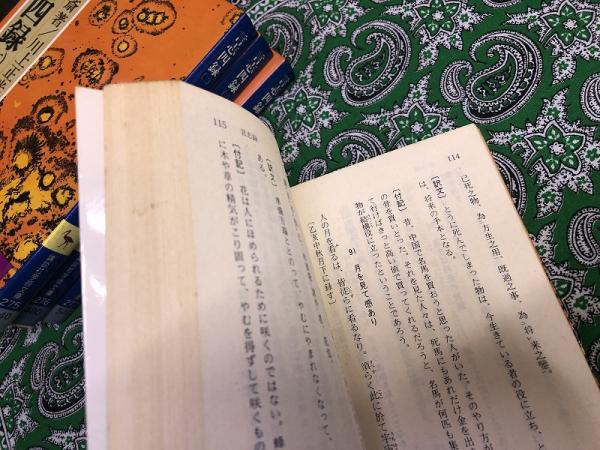 斎著/川上正
四録
言志四録
言志四録
言志四録
114
已死之物、為方生之用、既過之事、為将来之鑒。
〔訳文〕 とうに死んでしまった物は、今生きている者の役に立ち、と
は、将来の手本となる。
〔付記〕 昔、中国で名馬を買おうと思った人がいた。そのやり方が
の骨を買いとった。それを見た人々は、死馬にもあれだけ金を出
て行けばきっと高い値で買ってくれるだろうと、名馬が何匹も集
物が結構役に立ったということであろう。
91 月を見て感あり
人の月を看るは、皆徒らに看るなり。須らく此に於て宇宙
115
言志録
ある。
〔付記〕 花は人にほめられるために咲くのではない。蜂
に木や草の精気がこり固って、やむを得ずして咲くもの
275
276